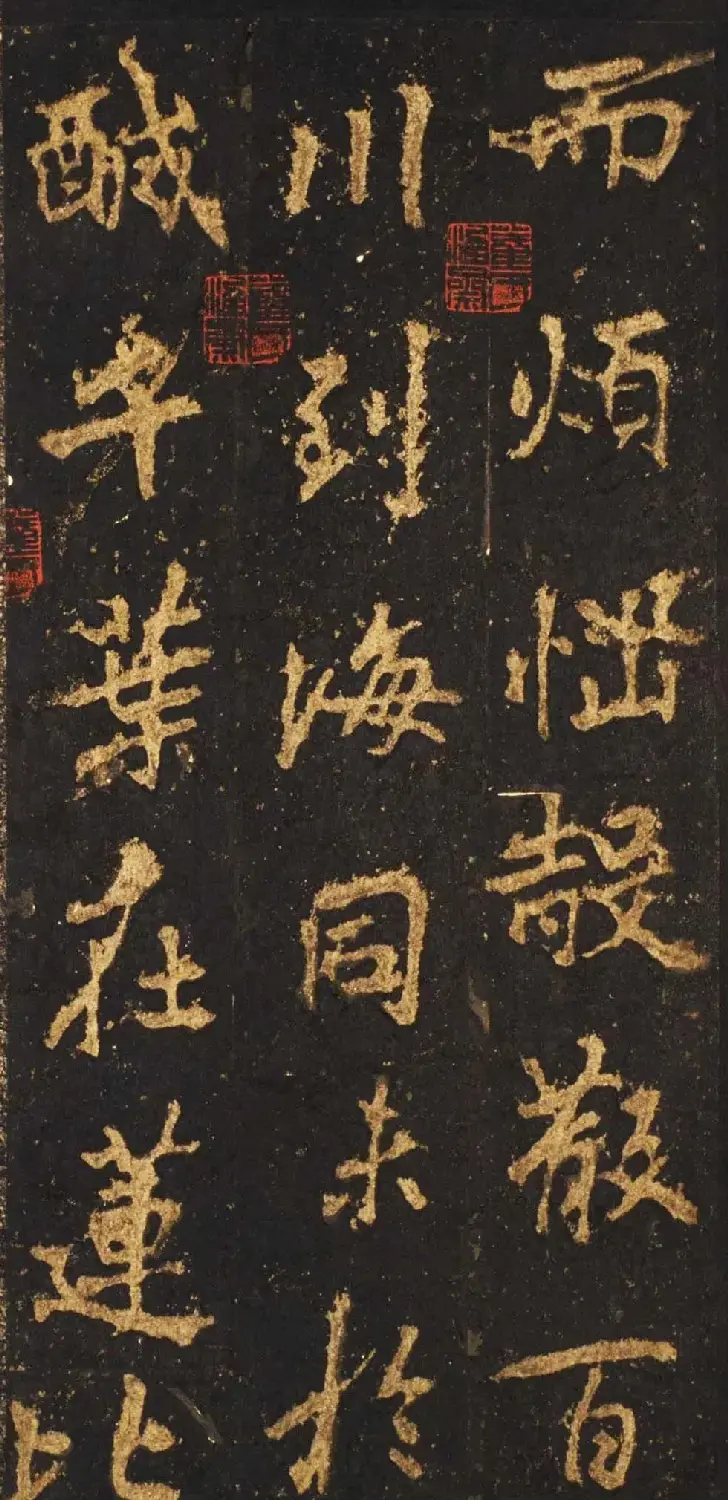 而煩惱殼散百
川到海同未於
醎千葉在蓮比